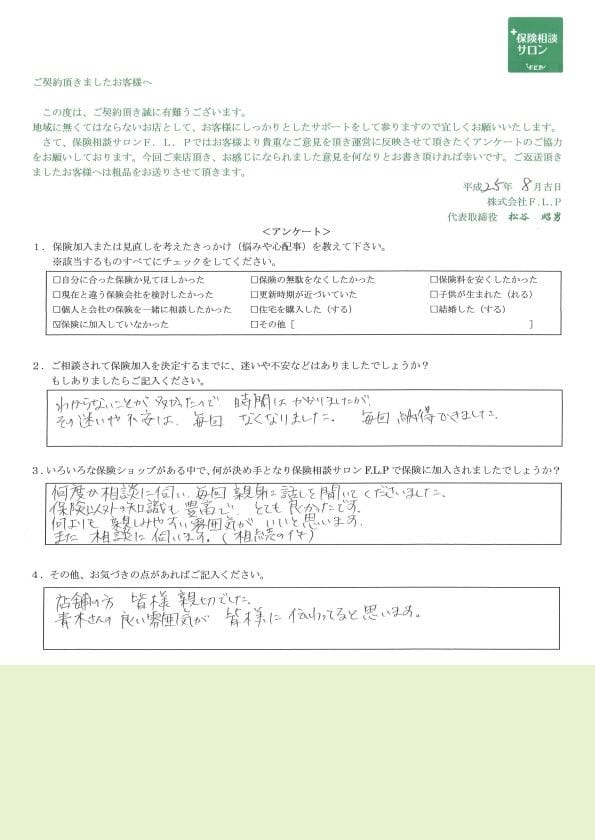 +保険相談
サロン
F.L.P
ご契約頂きましたお客様へ
この度は、ご契約頂き誠に有難うございます。
地域に無くてはならないお店として、お客様にしっかりとしたサポートをして参りますので宜しくお願いいたします。
さて、保険相談サロンF．L．Pではお客様より貴重なご意見を頂き運営に反映させて頂きたくアンケートのご協力
をお願いしております。今回ご来店頂き、お感じになられました意見を何なりとお書き頂ければ幸いです。ご返送頂き
ましたお客様へは粗品をお送りさせて頂きます。
平成25年 8月吉日
株式会社F.L.P
代表取締役 松谷 昭男
＜アンケート＞
1．保険加入または見直しを考えたきっかけ（悩みや心配事）を教えて下さい。
※該当するものすべてにチェックをしてください。
□自分に合った保険か見てほしかった □保険の無駄をなくしたかった □保険料を安くしたかった
□現在と違う保険会社を検討したかった □更新時期が近づいていた □子供が生まれた（れる）
□個人と会社の保険を一緒に相談したかった □住宅を購入した（する） □結婚した（する）
☑保険に加入していなかった □その他［ ］
2．ご相談されて保険加入を決定するまでに、迷いや不安などはありましたでしょうか？
もしありましたらご記入ください。
わからないことが多かったので 時間はかかりましたが
その迷いや不安は、毎回 なくなりました。 毎回 納得できました。
3．いろいろな保険ショップがある中で、何が決め手となり保険相談サロンF.L.Pで保険に加入されましたでしょうか？
何度か相談に伺い、毎回 親身に話しを聞いてくださいました。
保険以外の知識も豊富で、とても良かったです。
何よりも 親しみやすい雰囲気が いいと思います。
また 相談に 伺います。（相続の件）
4．その他、お気づきの点があればご記入ください。
店舗の方 皆様 親切でした。
青木さんの 良い雰囲気が 皆様に 伝わってると思います。